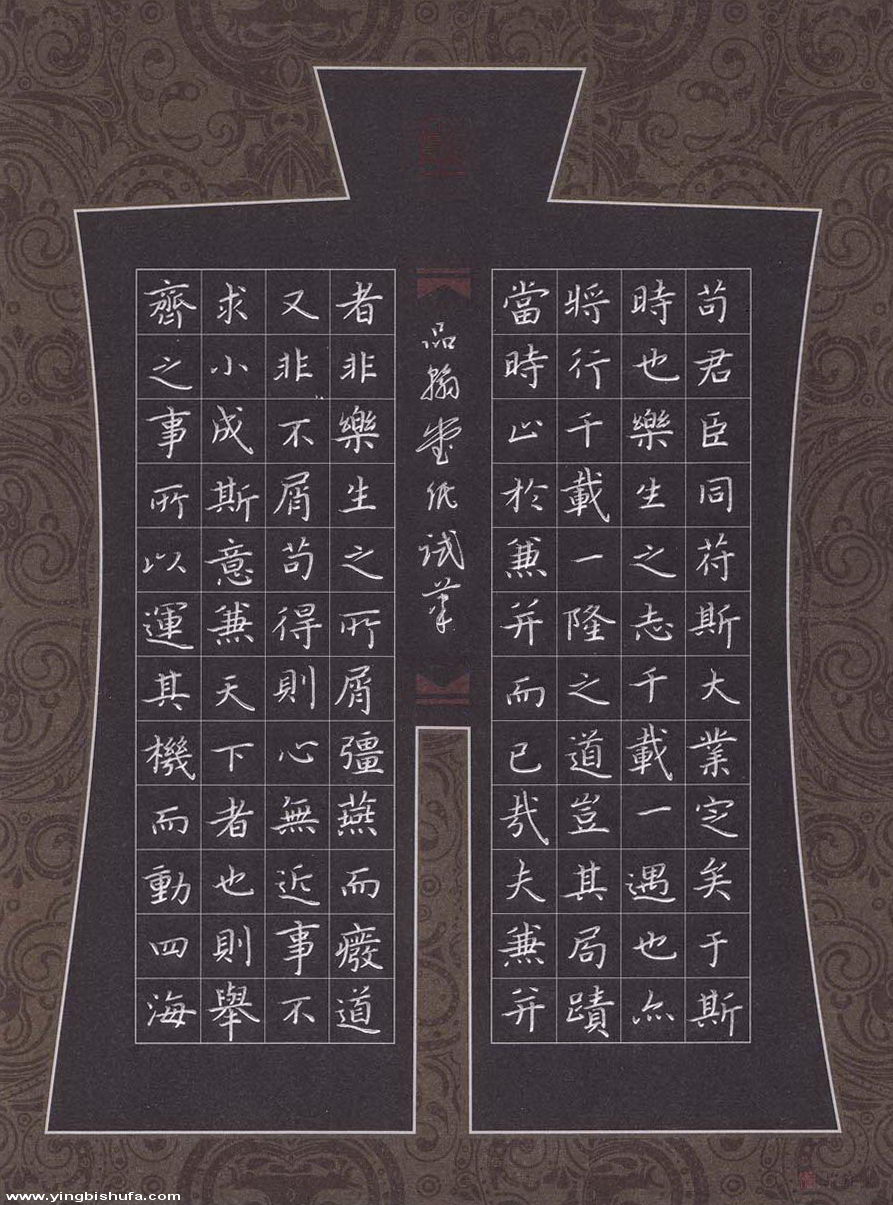 苟君臣同苻斯大業定矣于斯
時也樂生之志千載一遇也亦
將行千載一隆之道豈其局蹟
當時止於兼并而已哉夫兼并
品翰堂纸试笔
者非樂生之所屑彊燕而癈道
又非不屑苟得則心無近事不
求小成斯意兼天下者也則舉
齊之事所以運其機而動四海
www.yingbishufa.com